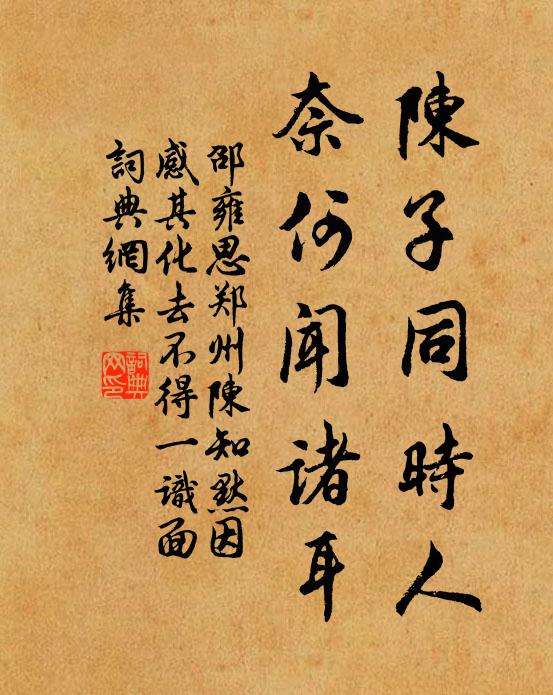 陳子同時人
奈何聞諸耳
邵雍思郑州陳知默因
感其化去不得一識面
詞典網集
詞典
网印